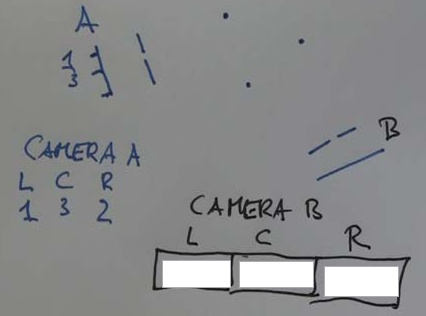 A
1
3
B
CAMERA A
L C R
1 3 2
CAMERA B
L C R